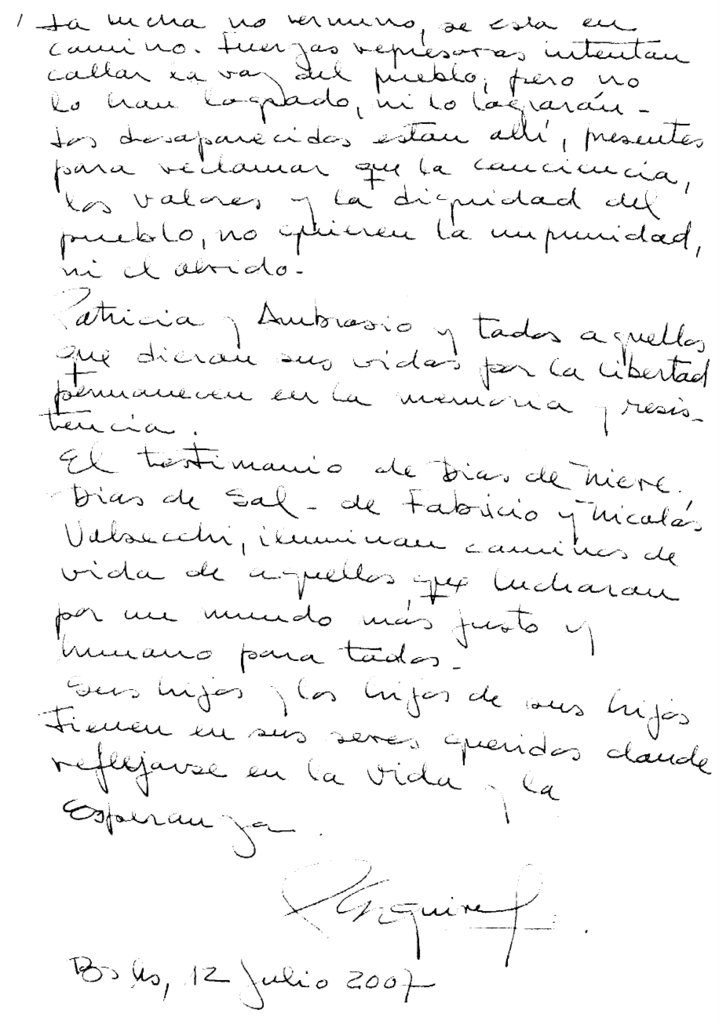 La lucha no termino, se esta en
camino. Fuerzas represoras intentan
callar la voz del pueblo, pero no
lo han logrado, ni lo lograrán -
Los desaparecidos estan allí, presentes
para reclamar que la conciencia,
los valores y la dignidad del
pueblo, no quieren la impunidad,
ni el olvido -
Patricia y Ambrosio y todos aquellos
que dieron sus vidas por la libertad
permanecen en la memoria y resis-
tencia.
El testimonio de Dias de Nieve,
Dias de Sal - de Fabricio y Nicolás
Valsecchi, iluminan caminos de
vida de aquellos que lucharon
por un mundo más justo y
humano para todos -
Sus hijos y los hijos de sus hijos
tienen en sus seres queridos donde
reflejarse en la vida y la
Esperanza.
Bs As, 12 Julio 2007